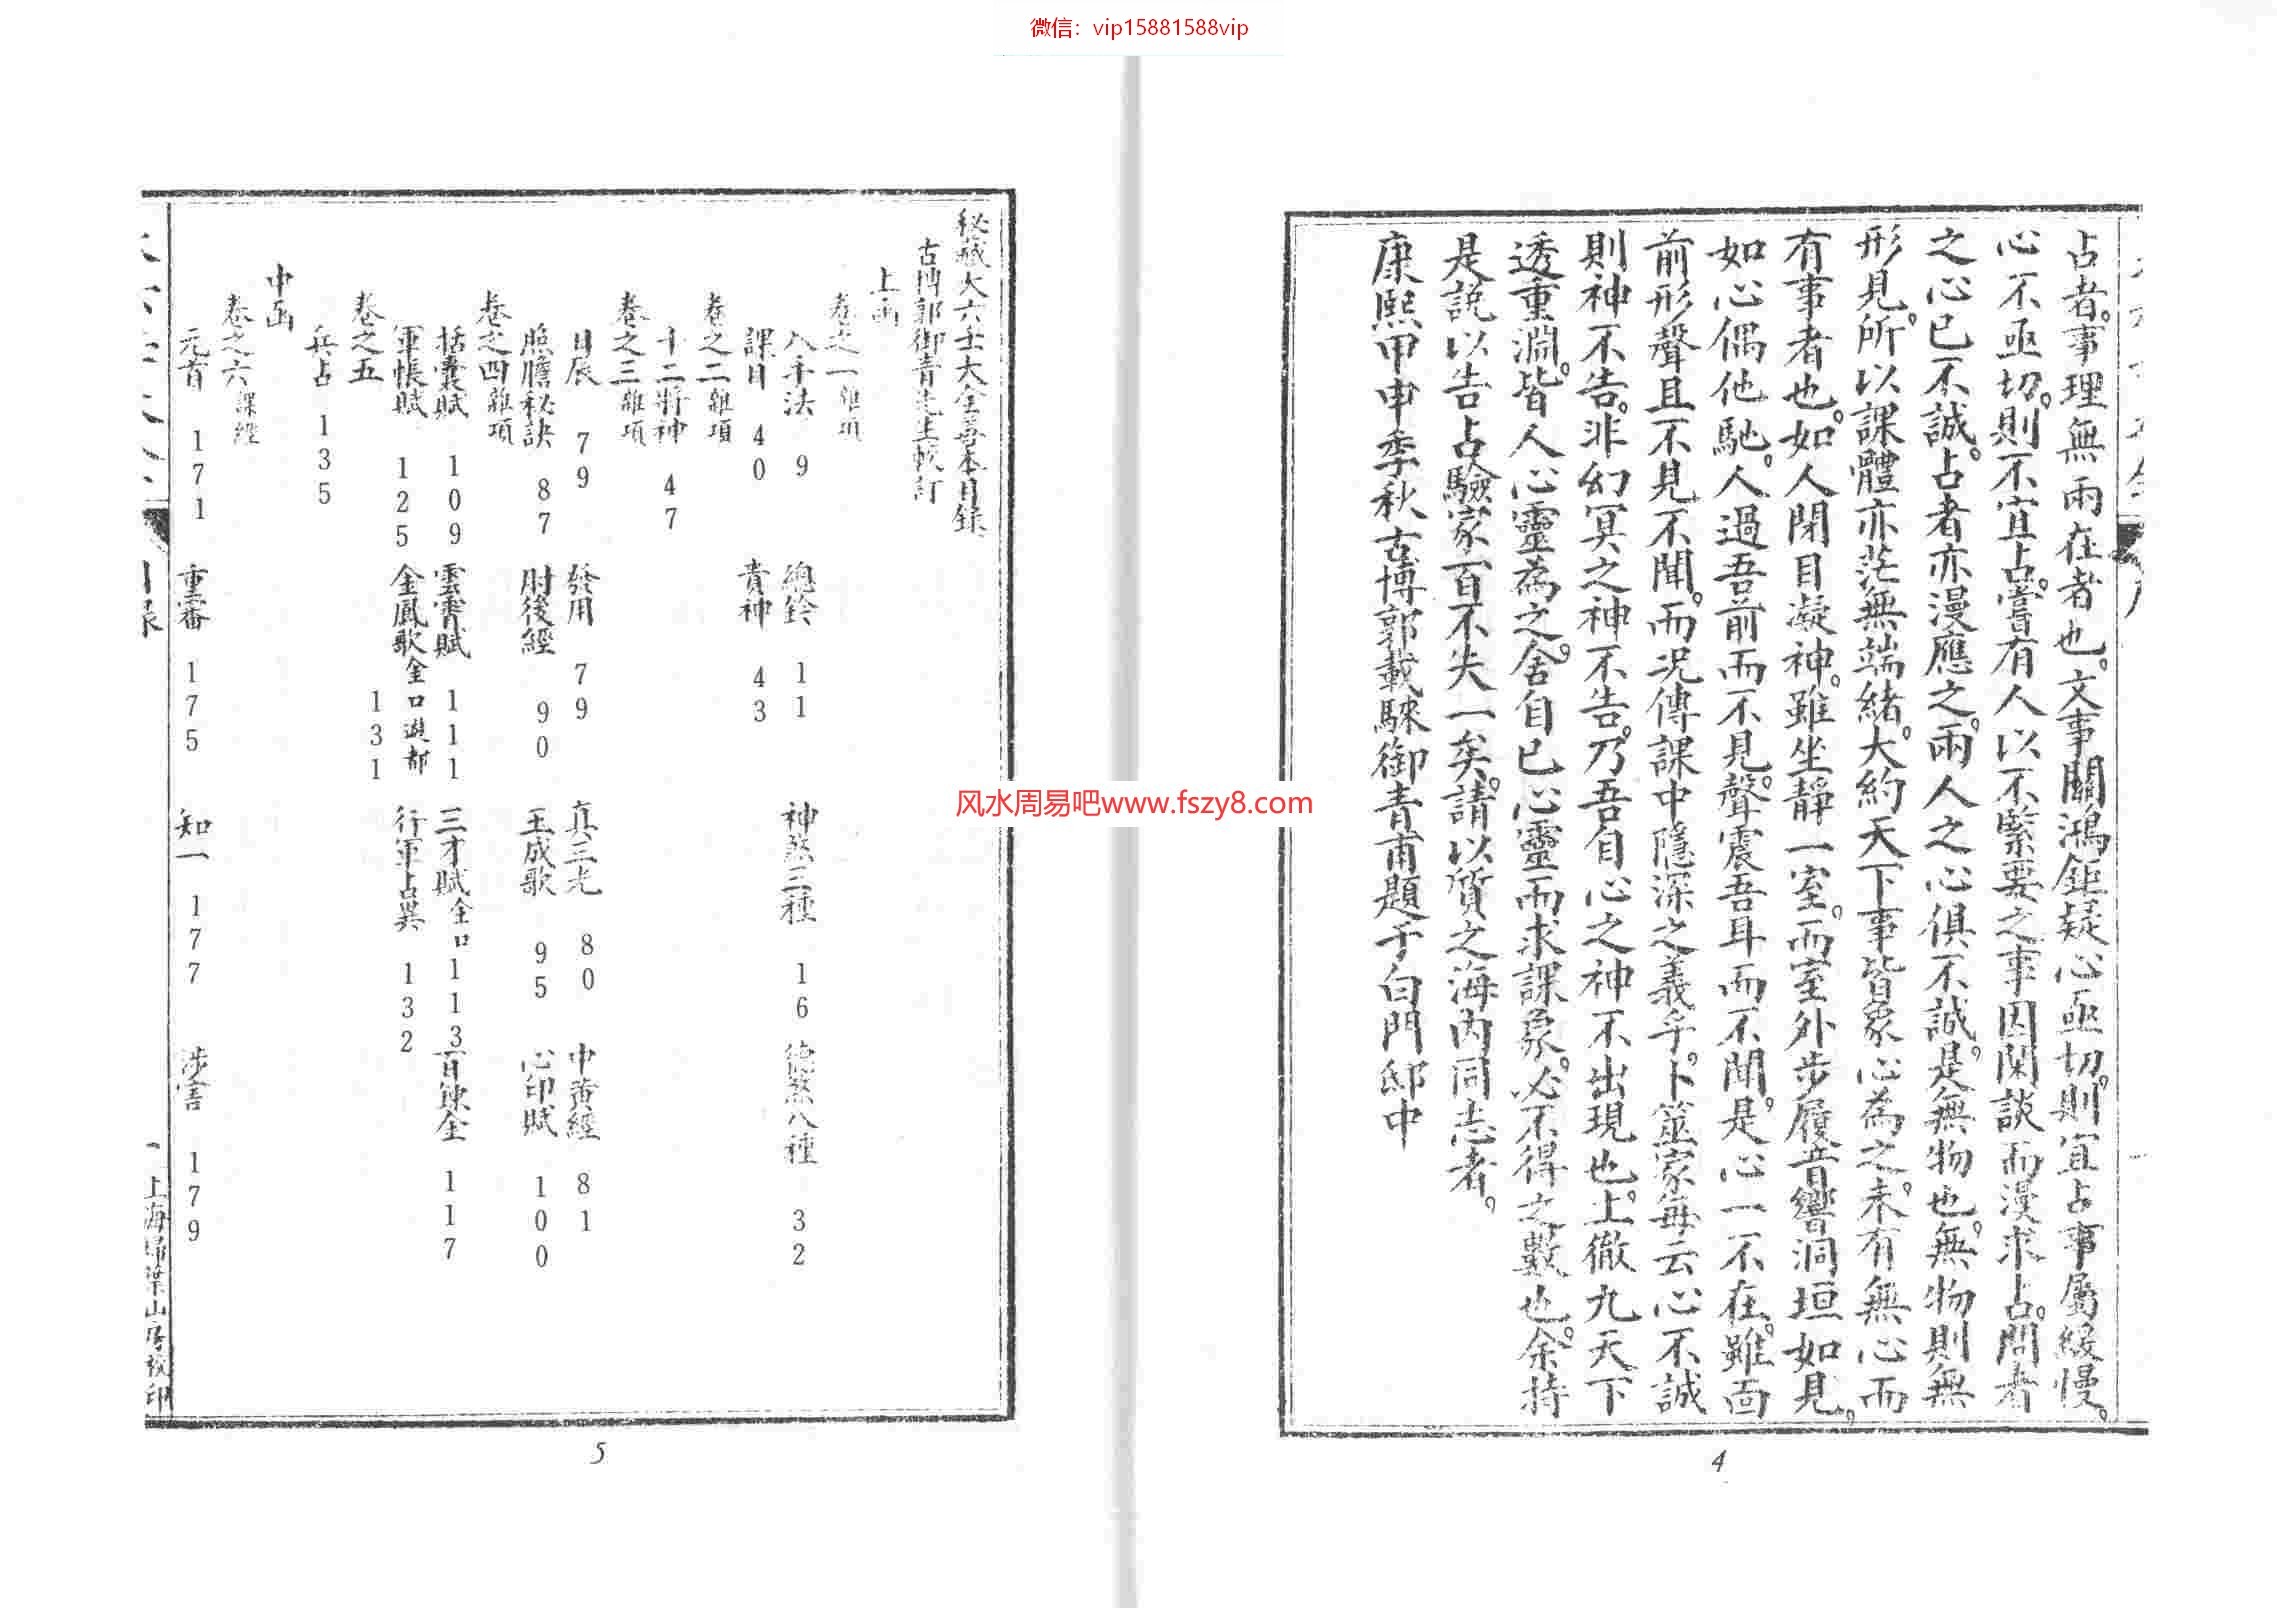 微信：vip15881588vip
占者。事理無兩在者也。文事關鴻鉅疑心亟切。則宜占事屬緩慢。
心不亟切。則不宜占。嘗有人以不緊要之事因閑談而漫求占。問者
之心已不誠。占者亦漫應之。兩人之心俱不誠。是無物也。無物則無
形見。所以課體亦茫無端緒。大約天下事皆象心為之。未有無心而
有事者也。如人閉目凝神。雖坐靜一室。而室外步履音響洞垣如見。
如心偶他馳。人過吾前而不見。聲震吾耳而不聞。是心一不在。雖面
前形聲且不見不聞。而况傳課中隱深之義乎。卜筮家每云心不誠
則神不告。非幻冥之神不告。乃吾自心之神不出現也。上徹九天下
透重淵。皆人心靈為之。舍自已心靈而求課象。必不得之數也。余持
是說以告占驗家百不失一矣。請以質之海內同志者。
康熙甲申季秋古博郭載騋御青甫題于白門邸中
4
风水周易吧www.fszy8.com
秘藏大六壬大全善本目錄
古博郭御青先生較訂
上函
卷之一雜項
入手法 9 總鈐 11 神煞三種 16 德煞八種 32
課目 40 貴神 43
卷之二雜項
十二將神 47
卷之三雜項
日辰 79 發用 79 真三光 80 中黃經 81
照膽秘訣 87 肘後經 90 玉成歌 95 心印賦 100
卷之四雜項
括囊賦 109 雲霄賦 111 三才賦金口 113 百鍊金 117
軍帳賦 125 金鳳歌金口遊都 131 行軍占異 132
卷之五
兵占 135
中函
卷之六課經
元首 171 重審 175 知一 177 涉害 179
目錄
一 上海掃葉山房校印
5